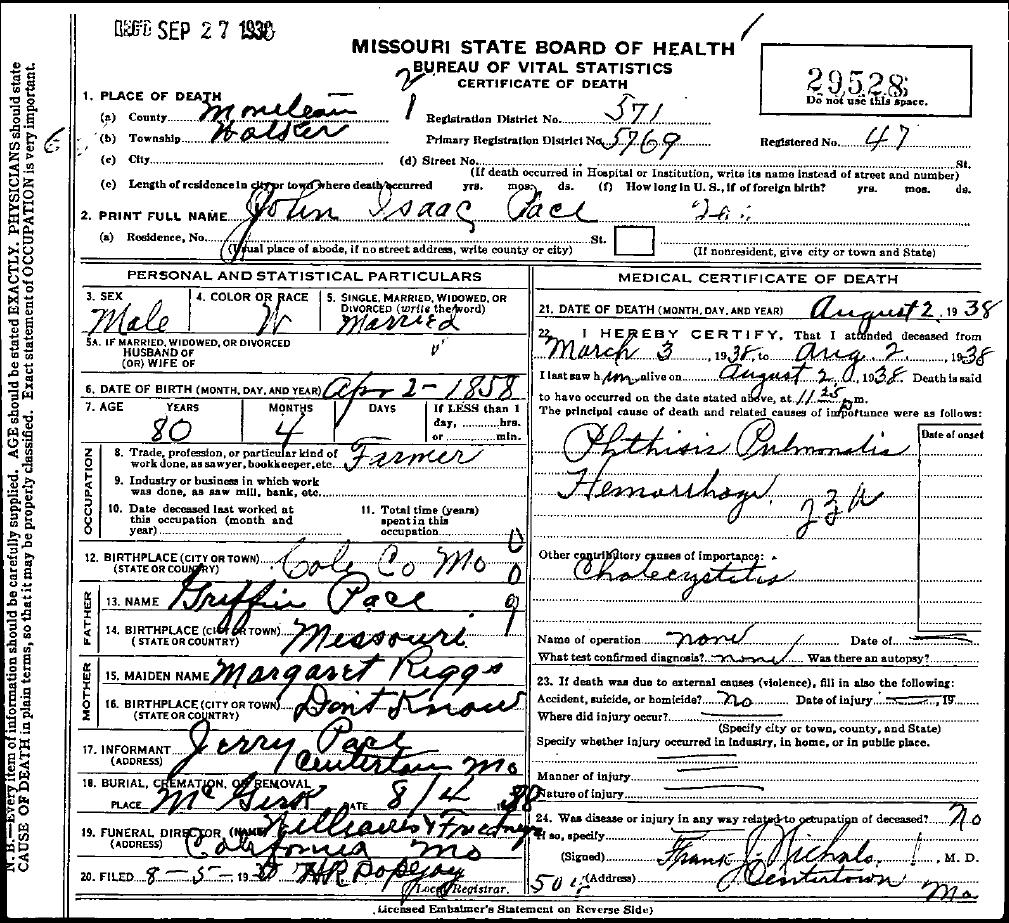 REC'D SEP 27 1938
MISSOURI STATE BOARD OF HEALTH
BUREAU OF VITAL STATISTICS
CERTIFICATE OF DEATH
29528
Do not use this space.
1. PLACE OF DEATH
(a) County Moniteau
Registration District No. 571
(b) Township Walker
Primary Registration District No. 5769
Registered No. 47
(c) City
(d) Street No. St.
(If death occurred in Hospital or Institution, write its name instead of street and number)
(e) Length of residence in city or town where death occurred yrs. mos. ds. (f) How long in U. S., if of foreign birth? yrs. mos. ds.
2. PRINT FULL NAME John Isaac Pace
(a) Residence, No. St.
(Usual place of abode, if no street address, write county or city)
(If nonresident, give city or town and State)
PERSONAL AND STATISTICAL PARTICULARS
3. SEX Male
4. COLOR OR RACE W
5. SINGLE, MARRIED, WIDOWED, OR DIVORCED (write the word) Married
5A. IF MARRIED, WIDOWED, OR DIVORCED
HUSBAND OF
(OR) WIFE OF
6. DATE OF BIRTH (MONTH, DAY, AND YEAR) Apr 2 - 1858
7. AGE YEARS 80 MONTHS 4 DAYS
If LESS than 1
day, hrs.
or min.
OCCUPATION
8. Trade, profession, or particular kind of work done, as sawyer, bookkeeper, etc. Farmer
9. Industry or business in which work was done, as saw mill, bank, etc.
10. Date deceased last worked at this occupation (month and year)
11. Total time (years) spent in this occupation
12. BIRTHPLACE (CITY OR TOWN) Cole Co Mo
(STATE OR COUNTRY)
FATHER
13. NAME Griffin Pace
14. BIRTHPLACE (CITY OR TOWN) Missouri
(STATE OR COUNTRY)
MOTHER
15. MAIDEN NAME Margaret Riggs
16. BIRTHPLACE (CITY OR TOWN) Don't Know
(STATE OR COUNTRY)
17. INFORMANT Jerry Pace
(ADDRESS) Centertown Mo
18. BURIAL, CREMATION, OR REMOVAL
PLACE McGirk DATE 8/4 1938
19. FUNERAL DIRECTOR (NAME) Williams &
(ADDRESS) California Mo
20. FILED 8-5-1938 HR Popejoy
Local Registrar.
MEDICAL CERTIFICATE OF DEATH
21. DATE OF DEATH (MONTH, DAY, AND YEAR) August 2, 1938
22. I HEREBY CERTIFY, That I attended deceased from
March 3, 1938 to Aug. 2, 1938
I last saw him alive on August 2, 1938. Death is said
to have occurred on the date stated above, at 11 25 p.m.
The principal cause of death and related causes of importance were as follows:
Date of onset
Phthisis Pulmonalis
Hemorrhage
23A
Other contributory causes of importance:
Cholecystitis
Name of operation none Date of
What test confirmed diagnosis? none Was there an autopsy?
23. If death was due to external causes (violence), fill in also the following:
Accident, suicide, or homicide? No Date of injury , 19
Where did injury occur?
(Specify city or town, county, and State)
Specify whether injury occurred in industry, in home, or in public place.
Manner of injury
Nature of injury
24. Was disease or injury in any way related to occupation of deceased? No
If so, specify
(Signed) Frank J. Nichols, M. D.
504 (Address) Centertown Mo
(Licensed Embalmer's Statement on Reverse Side)
N. B.—Every item of information should be carefully supplied. AGE should be stated EXACTLY. PHYSICIANS should state
CAUSE OF DEATH in plain terms, so that it may be properly classified. Exact statement of OCCUPATION is very important.